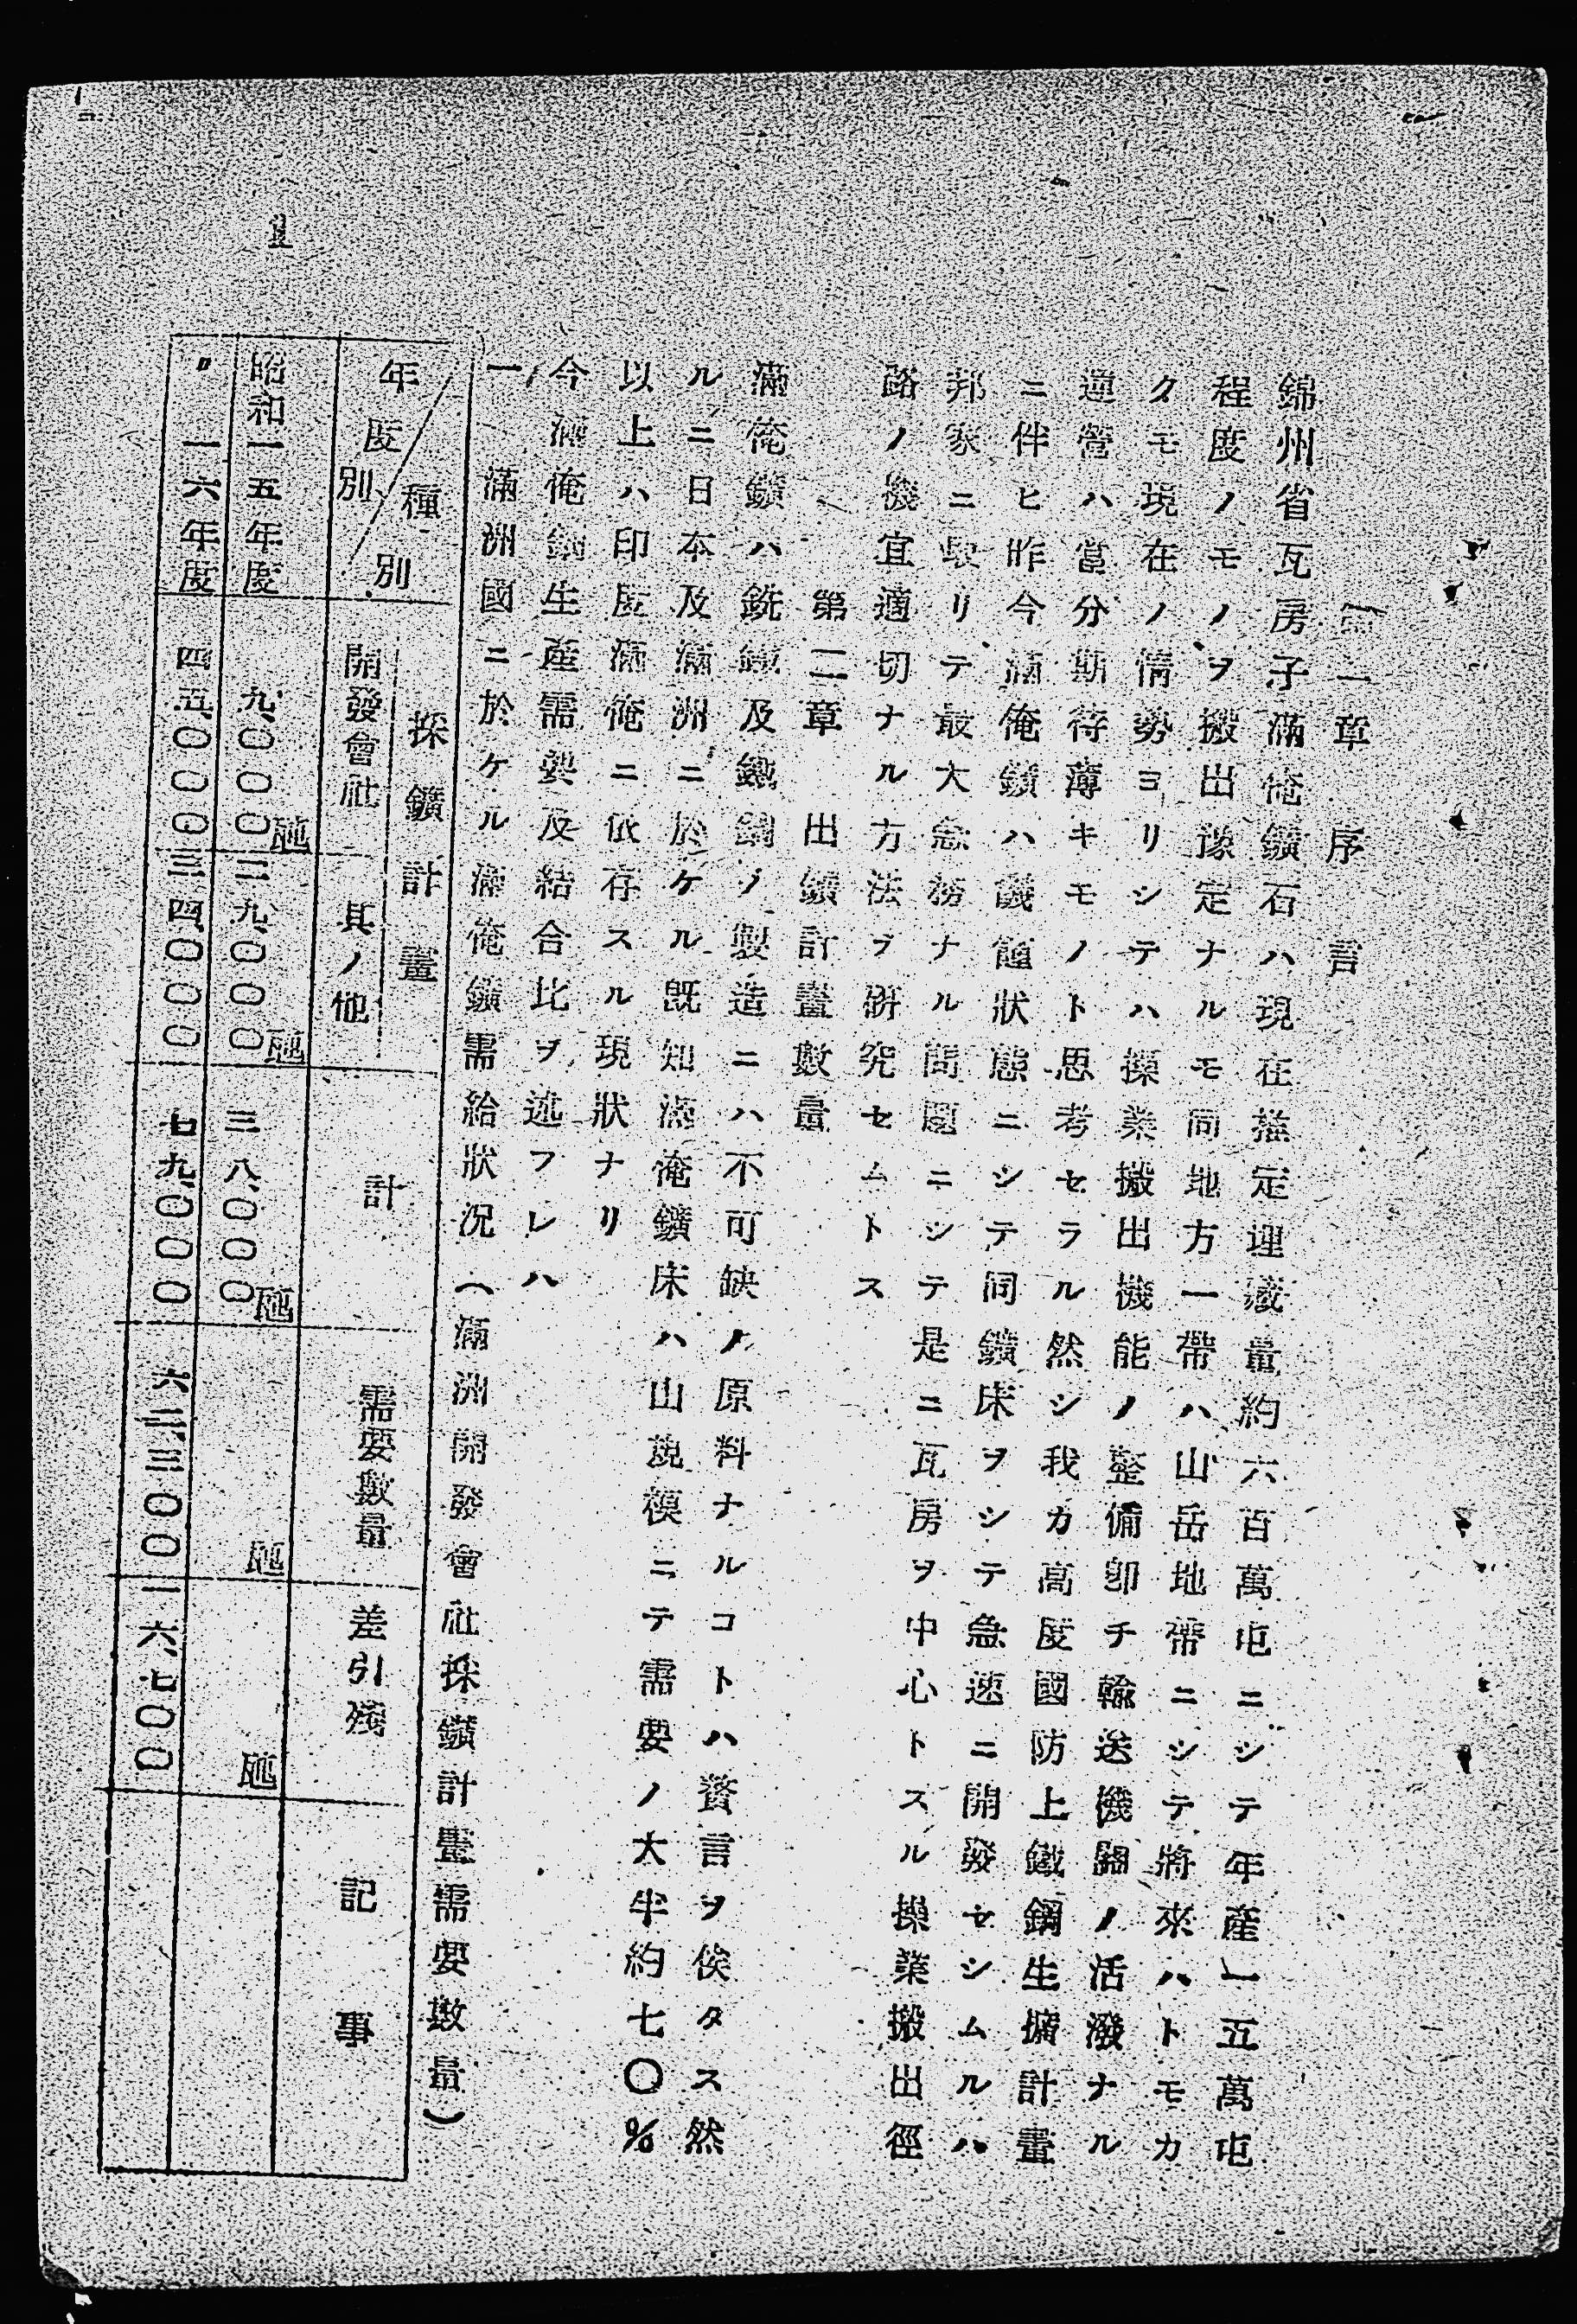 第一章 序言
錦州省瓦房子滿俺鑛石ハ現在推定埋藏量約六百萬屯ニシテ年產一五萬屯
程度ノモノヲ搬出豫定ナルモ同地方一帶ハ山岳地帶ニシテ將來ハトモカ
クモ現在ノ情勢ヨリシテハ操業搬出機能ノ整備卽チ輸送機關ノ活潑ナル
運營ハ當分期待薄キモノト思考セラル然シ我カ高度國防上鐵鋼生擴計畫
ニ伴ヒ昨今滿俺鑛ハ饑饉狀態ニシテ同鑛床ヲシテ急速ニ開發セシムルハ
邦家ニ取リテ最大急務ナル問題ニシテ是ニ瓦房ヲ中心トスル操業搬出徑
路ノ機宜適切ナル方法ヲ硏究セムトス
第二章 出鑛計畫數量
滿俺鑛ハ銑鐵及鐵鋼ノ製造ニハ不可缺ノ原料ナルコトハ贅言ヲ俟タス然
ルニ日本及滿洲ニ於ケル既知滿俺鑛床ハ小規模ニテ需要ノ大半約七〇%
以上ハ印度滿俺ニ依存スル現狀ナリ
今滿俺鑛生產需要及結合比ヲ述フレハ
一、滿洲國ニ於ケル滿俺鑛需給狀況(滿洲開發會社採鑛計畫需要數量)
年度別 種別 採鑛計畫 開發會社 其ノ他 計 需要數量 差引殘 記事
昭和一五年度 九、〇〇〇瓲 二九、〇〇〇瓲 三八、〇〇〇瓲 瓲 瓲
〃 一六年度 四五、〇〇〇 三四、〇〇〇 七九、〇〇〇 六二、三〇〇 一六、七〇〇